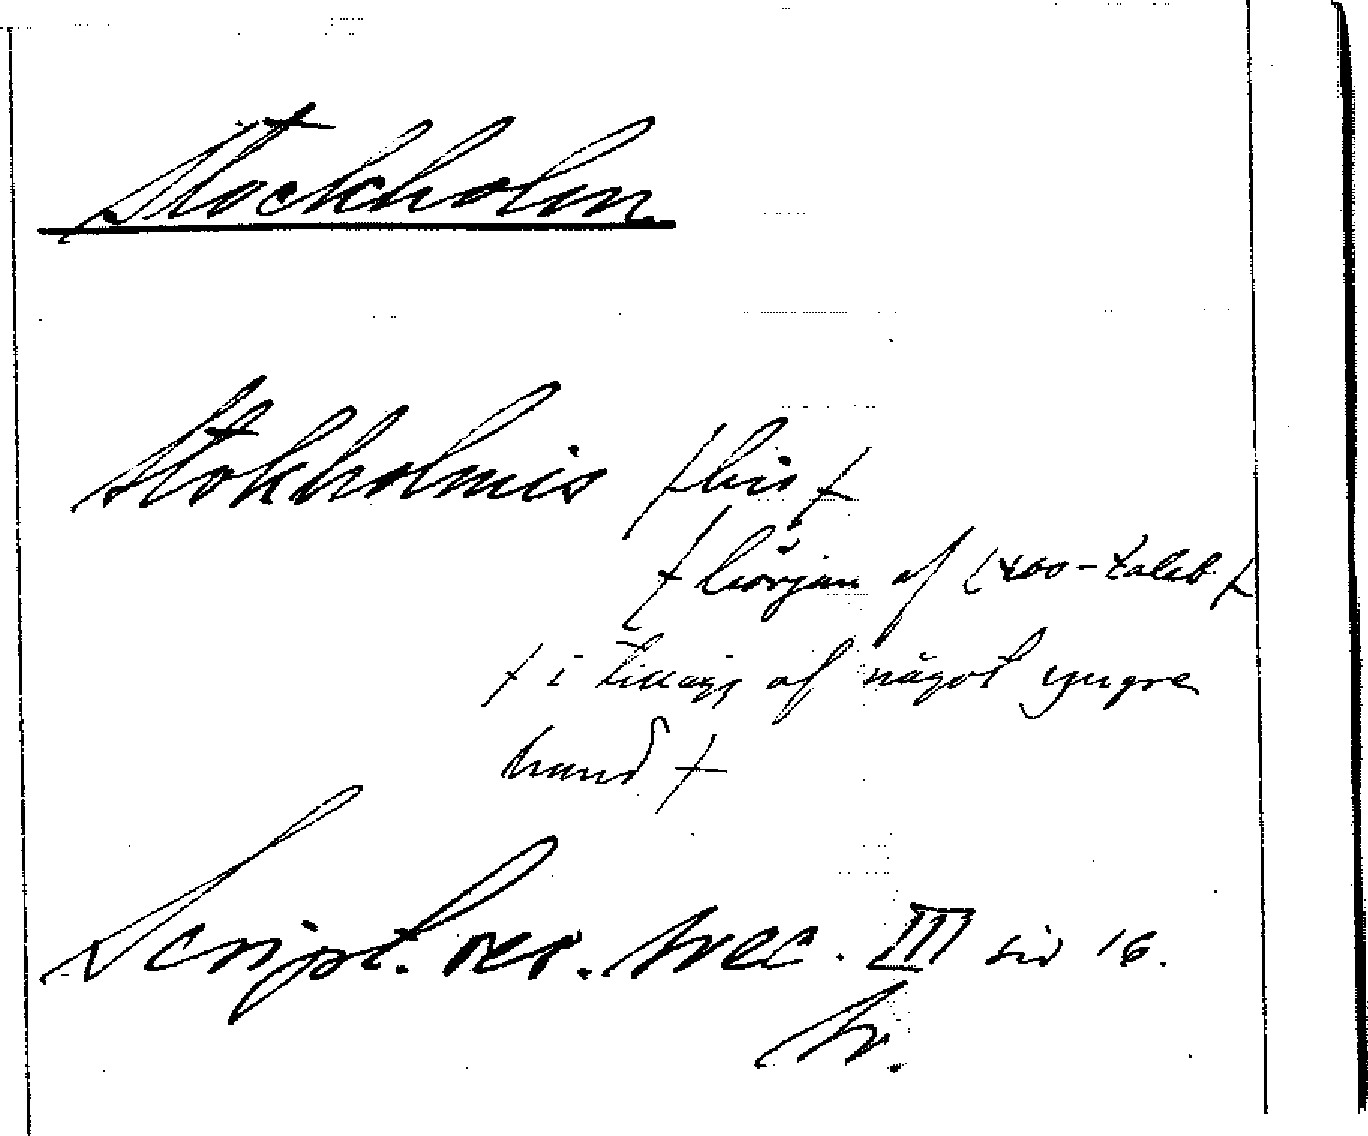 Stockholm
Stokholmis [bis]
[början af 1400-talet]
[i tillägg af något yngre
hand]
Script. rer. svec. III sid 16.
tr.